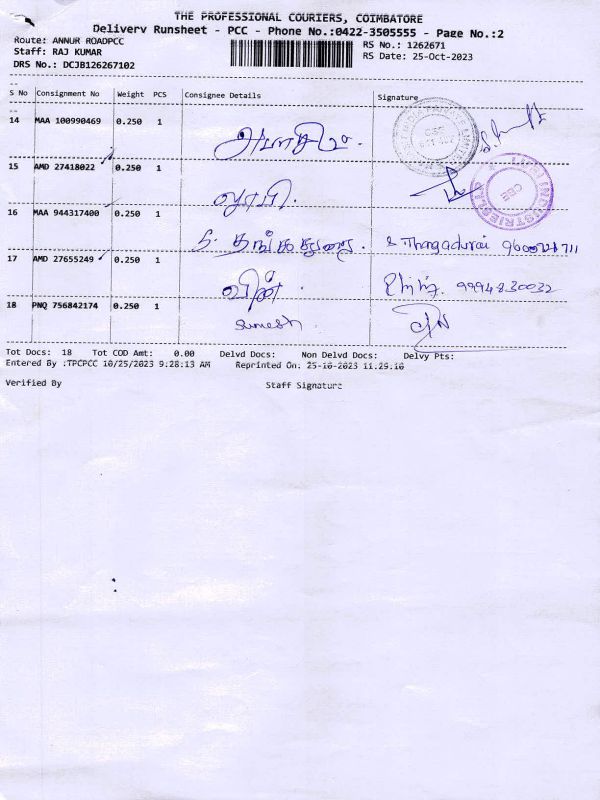 THE PROFESSIONAL COURIERS, COIMBATORE
Delivery Runsheet - PCC - Phone No.:0422-3505555 - Page No.:2
Route: ANNUR ROADPCC
RS No.: 1262671
Staff: RAJ KUMAR
RS Date: 25-Oct-2023
DRS No.: DCJB126267102
S No Consignment No Weight PCS Consignee Details Signature
14 MAA 100990469 0.250 1
15 AMD 27418022 0.250 1
16 MAA 944317400 0.250 1
S. தங்கதுரை. S Thangadurai
17 AMD 27655249 0.250 1
9994830032
18 PNQ 756842174 0.250 1
Sumesh
Tot Docs: 18 Tot COD Amt: 0.00 Delvd Docs: Non Delvd Docs: Delvy Pts:
Entered By :TPCPCC 10/25/2023 9:28:13 AM Reprinted On: 25-10-2023 11.29.10
Verified By Staff Signature